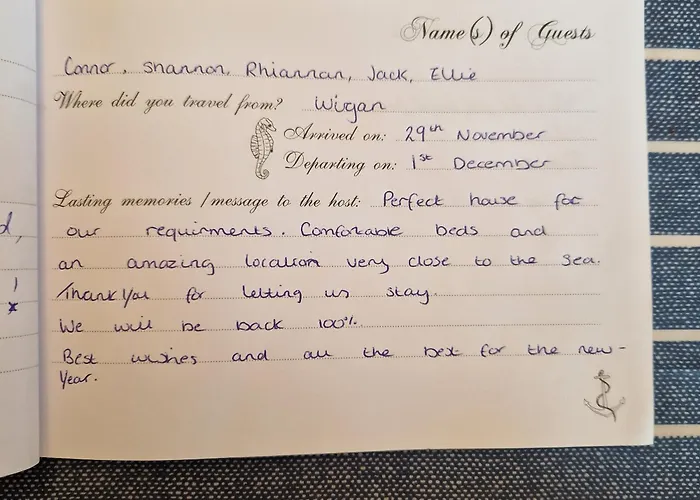 Name(s) of Guests
Connor, Shannon, Rhiannan, Jack, Ellie
Where did you travel from? Wigan
Arrived on: 29th November
Departing on: 1st December
Lasting memories / message to the host: Perfect house for
our requirments. Comfortable beds and
an amazing location very close to the sea.
Thank you for letting us stay.
We will be back 100%.
Best wishes and all the best for the new-
year.